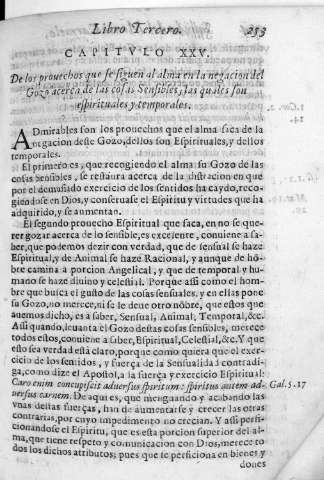 Libro Tercero. 253
CAPITVLO XXV.
De los prouechos que se siguen al alma en la negacion del
Gozo acerca de las cosas Sensibles, las quales son
espirituales y temporales.
ADmirables son los prouechos que el alma saca de la
negacion deste Gozo, dellos son Espirituales, y dellos
temporales.
El primero es, que recogiendo el alma su Gozo de las
cosas sensibles, se restaura acerca de la distracion en que
por el demasiado exercicio de los sentidos ha caydo, reco-
giendose en Dios, y conseruase el Espiritu y virtudes que ha
adquirido, y se aumentan.
El segundo prouecho Espiritual que saca, en no se que-
rer gozar acerca de lo sensible, es excelente, conuiene a sa-
ber, que podemos dezir con verdad, que de sensual se haze
Espiritual, y de Animal se haze Racional, y aunque de hõ-
bre camina a porcion Angelical, y que de temporal y hu-
mano se haze diuino y celestial. Porque assi como el hom-
bre que busca el gusto de las cosas sensuales, y en ellas pone
su Gozo, no merece, ni se le deue otro nõbre, que estos que
auemos dicho, es a saber, Sensual, Animal, Temporal, &c.
Assi quando leuanta el Gozo destas cosas sensibles, merece
todos estos, conuiene a saber, Espiritual, Celestial, &c. Y que
esto sea verdad està claro, porque como quiera que el exer-
cicio de los sentidos, y fuerça de la Sensualidad contradi-
ga, como dize el Apostol, a la fuerça y exercicio Espiritual:
Caro enim concupiscit aduersus spiritum: spiritus autem ad- Gal. 5. 17
uersus carnem. De aqui es, que menguando y acabando las
vnas destas fuerças, han de aumentarse y crecer las otras
contrarias, por cuyo impedimento no crecian. Y assi perfi-
cionandose el Espiritu, que es esta porcion superior del al-
ma, que tiene respeto y comunicacion con Dios, merece to
dos los dichos atributos; pues que se perficiona en bienes y
dones